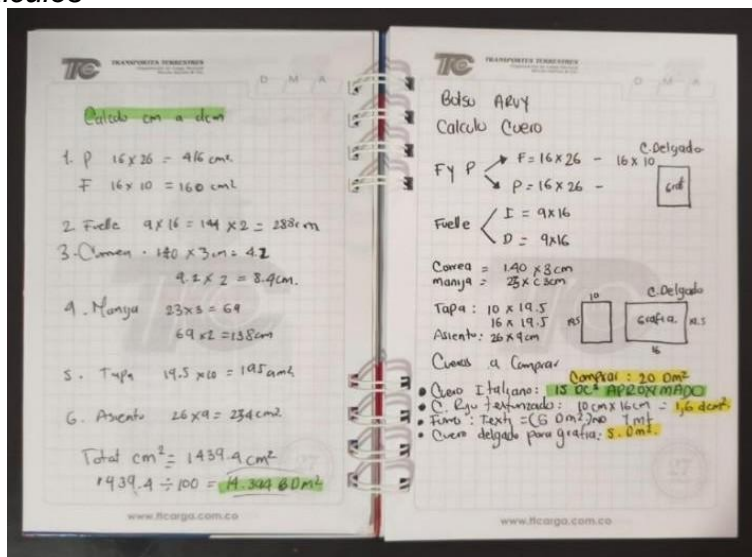 TC TRANSPORTES TERRESTRES
D M A
Calculo cm a dcm
1. P 16 x 26 = 416 cm2.
F 16 x 10 = 160 cm2
2. Fuelle 9 x 16 = 144 x 2 = 288cm
3. Correa . 140 x 3cm = 4.2
4.2 x 2 = 8.4cm.
4. Manija 23x3 = 69
69 x2 = 138cm
5. Tapa 19.5 x10 = 195cm2
6. Asiento 26x9 = 234cm2
Total cm² = 1439.4 cm²
1439.4 ÷ 100 =
www.ttcarga.com.co
TC TRANSPORTES TERRESTRES
D M A
Bolso ARUY
Calculo Cuero
C. Delgado
F y P F = 16 x 26 - 16 x 10
P = 16 x 26 - Graf
Fuelle I = 9x16
D = 9x16
Correa = 1.40 x 3cm
manija = 23 x 3cm
Tapa : 10 x 19.5
16 x 19.5
Asiento: 26x9cm
10
19.5
C. Delgado
Grafia.
16
Cueros a Comprar
Comprar : 20 Dm²
Cuero Italiano: 15 DC² APROXIMADO
C. texturizado: 10cm x 16cm = 1,6 dcm².
Forro : Text =
Cuero delgado para grafia: 5.0m².
www.ttcarga.com.co